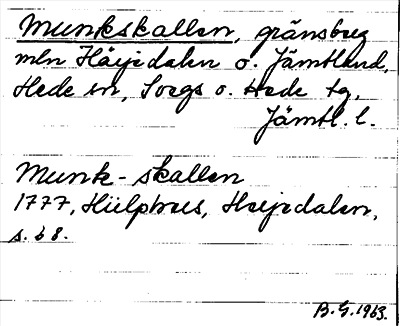 Munkskallen, gränsberg
mln Härjedalen o. Jämtland,
Hede sn, Svegs o. Hede tg,
Jämtl. l.
Munk-skallen
1777, Hülphers, Herjedalen,
s. 68.
B.G. 1963.